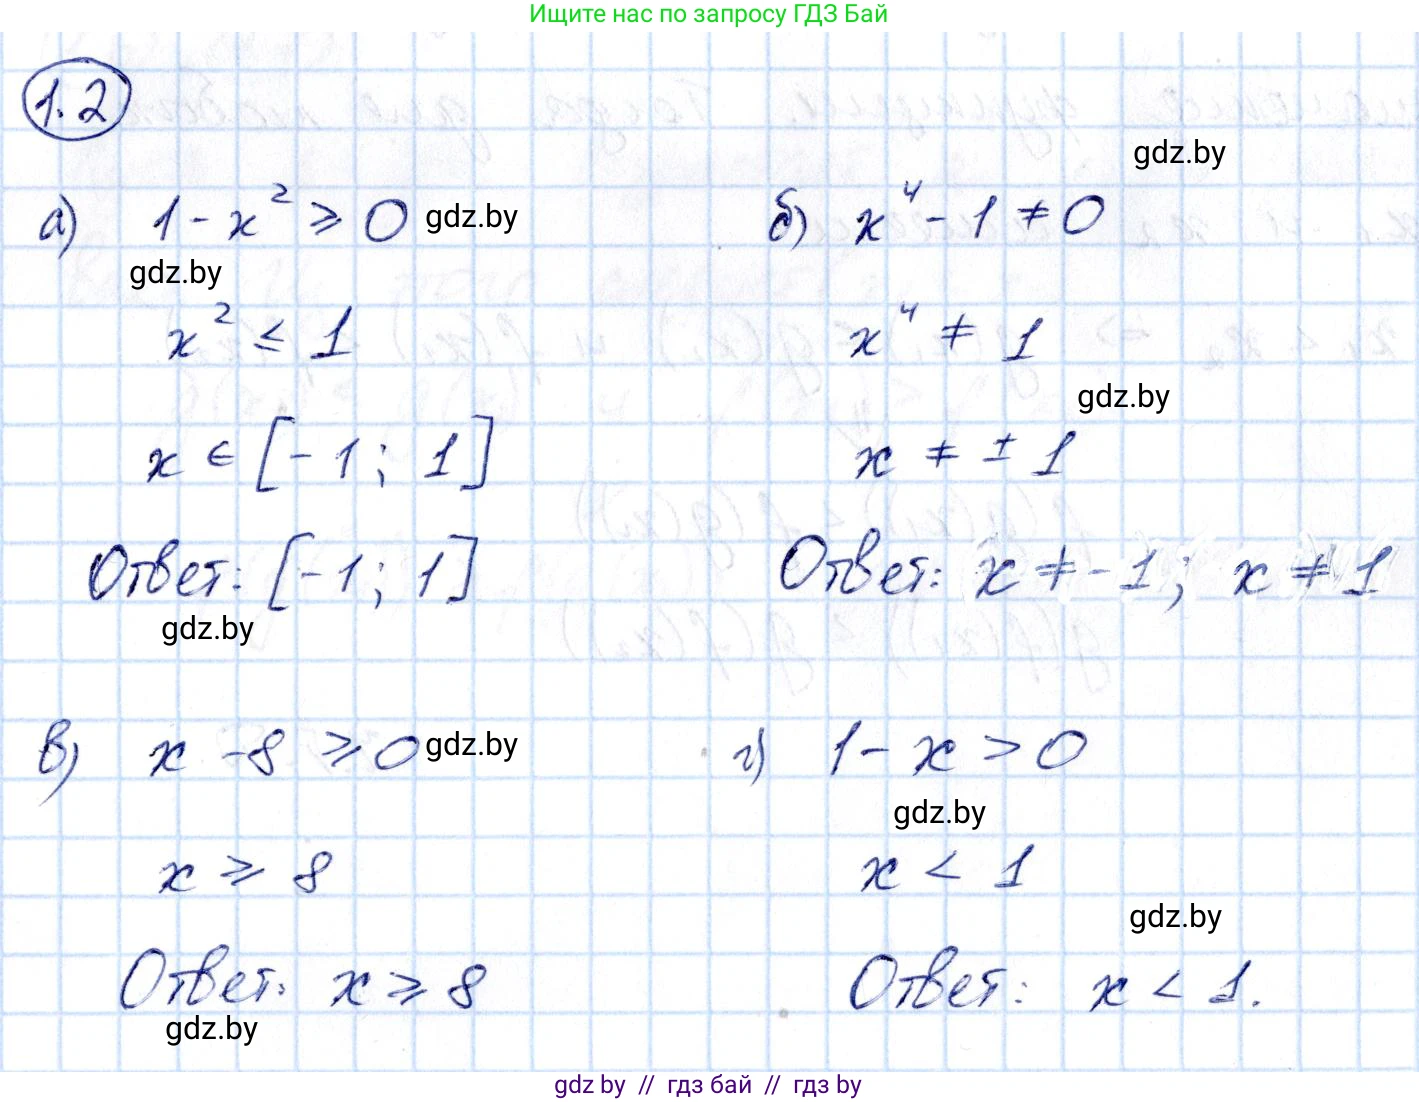 Ищите нас по запросу ГДЗ Бай
1.2
gdz.by
а) 1 - x² ⩾ 0 gdz.by
gdz.by
x² ≤ 1
x ∈ [-1; 1]
Ответ: [-1; 1]
gdz.by
б) x⁴ - 1 ≠ 0
x⁴ ≠ 1
gdz.by
x ≠ ± 1
Ответ: x ≠ -1; x ≠ 1
в) x - 8 ⩾ 0 gdz.by
x ⩾ 8
Ответ: x ⩾ 8
gdz.by
г) 1 - x > 0
gdz.by
x < 1
gdz.by
Ответ: x < 1.
gdz by // гдз бай // гдз by